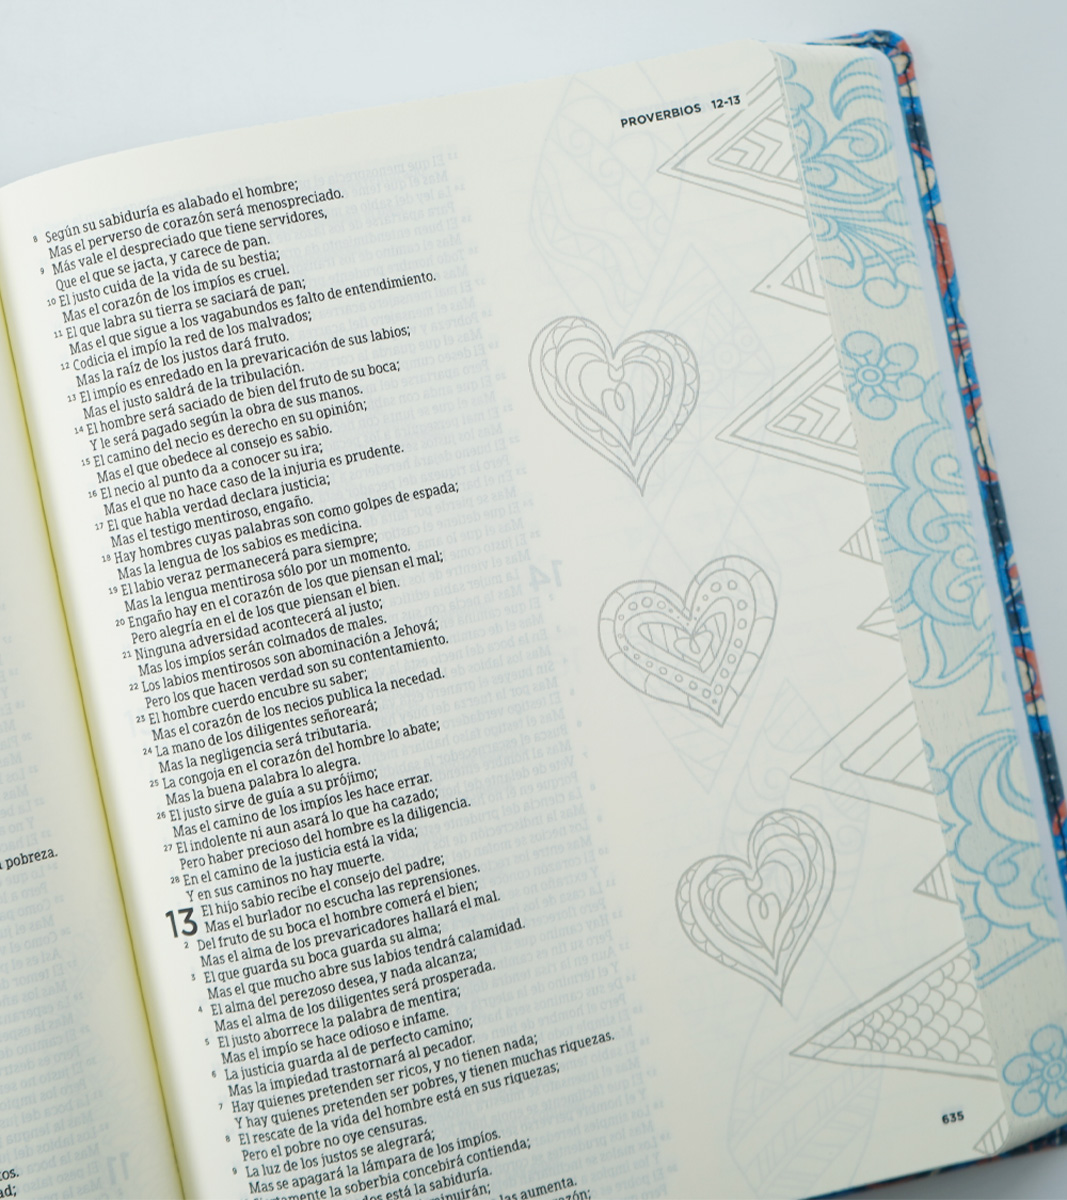 PROVERBIOS 12-13
8 Según su sabiduría es alabado el hombre;
Mas el perverso de corazón será menospreciado.
9 Más vale el despreciado que tiene servidores,
Que el que se jacta, y carece de pan.
10 El justo cuida de la vida de su bestia;
Mas el corazón de los impíos es cruel.
11 El que labra su tierra se saciará de pan;
Mas el que sigue a los vagabundos es falto de entendimiento.
12 Codicia el impío la red de los malvados;
Mas la raíz de los justos dará fruto.
13 El impío es enredado en la prevaricación de sus labios;
Mas el justo saldrá de la tribulación.
14 El hombre será saciado de bien del fruto de su boca;
Y le será pagado según la obra de sus manos.
15 El camino del necio es derecho en su opinión;
Mas el que obedece al consejo es sabio.
16 El necio al punto da a conocer su ira;
Mas el que no hace caso de la injuria es prudente.
17 El que habla verdad declara justicia;
Mas el testigo mentiroso, engaño.
18 Hay hombres cuyas palabras son como golpes de espada;
Mas la lengua de los sabios es medicina.
19 El labio veraz permanecerá para siempre;
Mas la lengua mentirosa sólo por un momento.
20 Engaño hay en el corazón de los que piensan el mal;
Pero alegría en el de los que piensan el bien.
21 Ninguna adversidad acontecerá al justo;
Mas los impíos serán colmados de males.
22 Los labios mentirosos son abominación a Jehová;
Pero los que hacen verdad son su contentamiento.
23 El hombre cuerdo encubre su saber;
Mas el corazón de los necios publica la necedad.
24 La mano de los diligentes señoreará;
Mas la negligencia será tributaria.
25 La congoja en el corazón del hombre lo abate;
Mas la buena palabra lo alegra.
26 El justo sirve de guía a su prójimo;
Mas el camino de los impíos les hace errar.
27 El indolente ni aun asará lo que ha cazado;
Pero haber precioso del hombre es la diligencia.
28 En el camino de la justicia está la vida;
Y en sus caminos no hay muerte.
13 El hijo sabio recibe el consejo del padre;
Mas el burlador no escucha las reprensiones.
2 Del fruto de su boca el hombre comerá el bien;
Mas el alma de los prevaricadores hallará el mal.
3 El que guarda su boca guarda su alma;
Mas el que mucho abre sus labios tendrá calamidad.
4 El alma del perezoso desea, y nada alcanza;
Mas el alma de los diligentes será prosperada.
5 El justo aborrece la palabra de mentira;
Mas el impío se hace odioso e infame.
6 La justicia guarda al de perfecto camino;
Mas la impiedad trastornará al pecador.
7 Hay quienes pretenden ser ricos, y no tienen nada;
Y hay quienes pretenden ser pobres, y tienen muchas riquezas.
8 El rescate de la vida del hombre está en sus riquezas;
Pero el pobre no oye censuras.
9 La luz de los justos se alegrará;
Mas se apagará la lámpara de los impíos.
la soberbia concebirá contienda;
está la sabiduría.
aumenta.
pobreza.
635